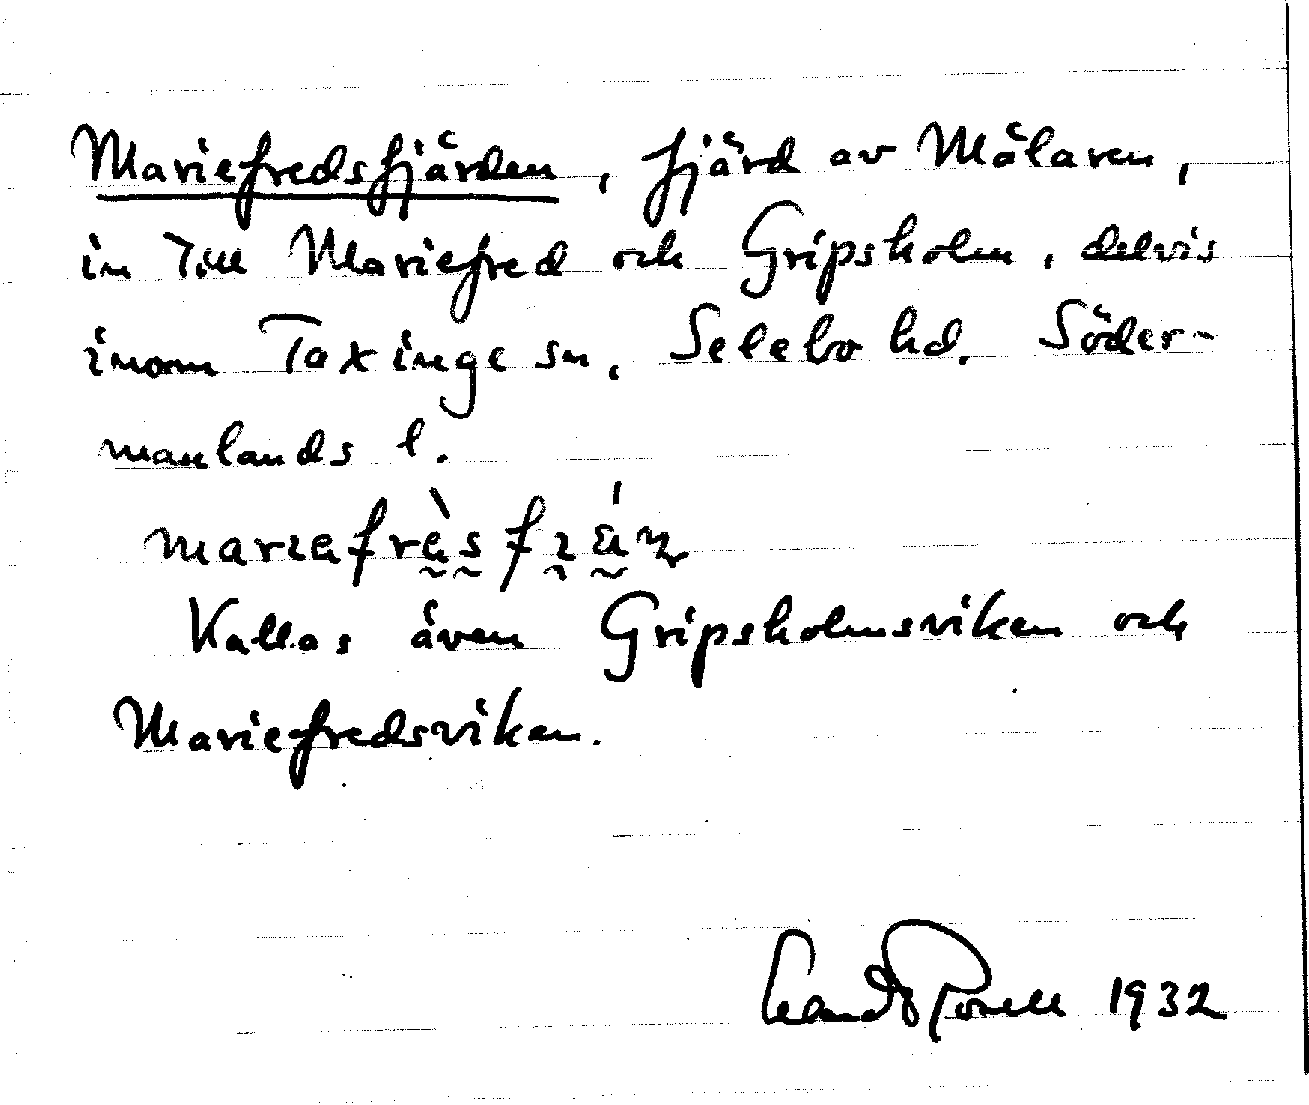 Mariefredsfjärden, fjärd av Mälaren,
in till Mariefred och Gripsholm, delvis
inom Taxinge sn, Selebo hd. Söder-
manlands l.
Kallas även Gripsholmsviken och
Mariefredsviken.
1932